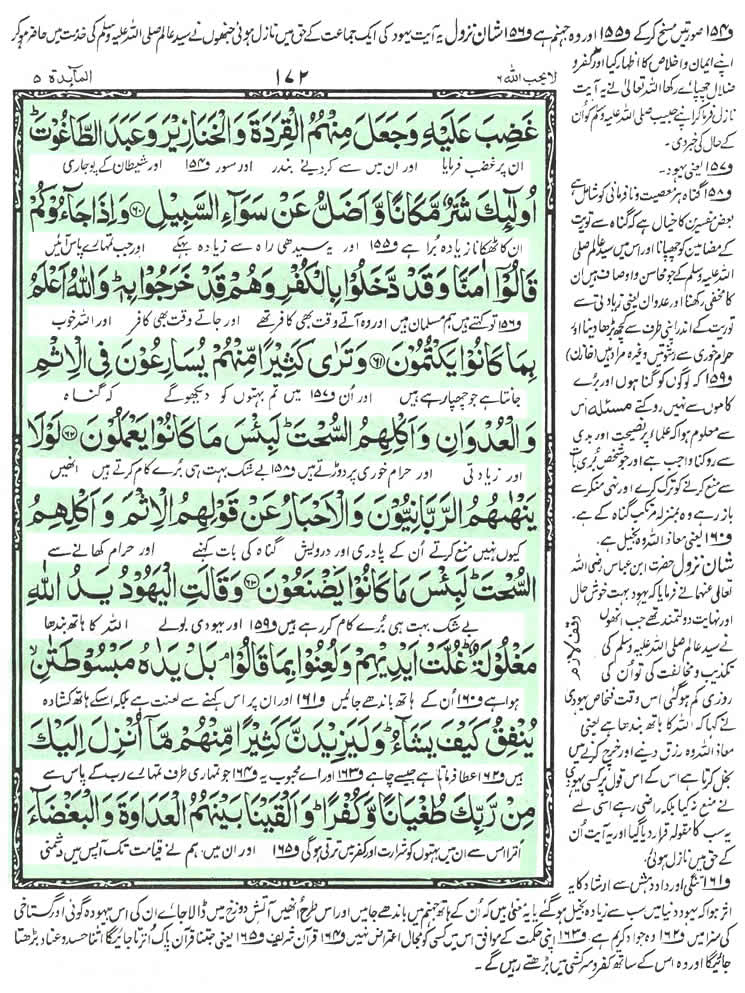 و۱۵۴ صورتیں مسخ کرکے و۱۵۵ اور وہ جہنم ہے و۱۵۶ شان نزول یہ آیت یہود کی ایک جماعت کے حق میں نازل ہوئی جنھوں نے سید عالم صلی اللہ علیہ وسلم کی خدمت میں حاضر ہوکر
لایحب اللہ ۶ ۱۷۲ المآىدة ۵
غَضِبَ عَلَيْهِ وَجَعَلَ مِنْهُمُ الْقِرَدَةَ وَالْخَنَازِيْرَ وَعَبَدَ الطَّاغُوْتَ ؕ
ان پر غضب فرمایا اور ان میں سے کردیئے بندر اور سور و۱۵۴ اور شیطان کے پوجاری
اُولٰٓئِكَ شَرٌّ مَّكَانًا وَّاَضَلُّ عَنْ سَوَآءِ السَّبِيْلِ ۶۰ وَاِذَا جَآءُوْكُمْ
ان کا ٹھکانا زیادہ برا ہے و۱۵۵ اور یہ سیدھی راہ سے زیادہ بہکے اور جب تمہارے پاس آئیں
قَالُوْٓا اٰمَنَّا وَقَدْ دَّخَلُوْا بِالْكُفْرِ وَهُمْ قَدْ خَرَجُوْا بِهٖ ؕ وَاللّٰهُ اَعْلَمُ
و۱۵۶ تو کہتے ہیں ہم مسلمان ہیں اور وہ آتے وقت بھی کافر تھے اور جاتے وقت بھی کافر اور اللہ خوب
بِمَا كَانُوْا يَكْتُمُوْنَ ۶۱ وَتَرٰى كَثِيْرًا مِّنْهُمْ يُسَارِعُوْنَ فِى الْاِثْمِ
جانتا ہے جو چھپا رہے ہیں اور اُن و۱۵۷ میں تم بہتوں کو دیکھوگے کہ گناہ
وَالْعُدْوَانِ وَاَكْلِهِمُ السُّحْتَ ؕ لَبِئْسَ مَا كَانُوْا يَعْمَلُوْنَ ۶۲ لَوْلَا
اور زیادتی اور حرام خوری پر دوڑتے ہیں و۱۵۸ بے شک بہت ہی بُرے کام کرتے ہیں انھیں
يَنْهٰىهُمُ الرَّبّٰنِيُّوْنَ وَالْاَحْبَارُ عَنْ قَوْلِهِمُ الْاِثْمَ وَاَكْلِهِمُ
کیوں نہیں منع کرتے اُن کے پادری اور درویش گناہ کی بات کہنے اور حرام کھانے سے
السُّحْتَ ؕ لَبِئْسَ مَا كَانُوْا يَصْنَعُوْنَ ۶۳ وَقَالَتِ الْيَهُوْدُ يَدُ اللّٰهِ
بے شک بہت ہی بُرے کام کر رہے ہیں و۱۵۹ اور یہودی بولے اللہ کا ہاتھ بندھا
مَغْلُوْلَةٌ ؕ غُلَّتْ اَيْدِيْهِمْ وَلُعِنُوْا بِمَا قَالُوْا ۘ بَلْ يَدٰهُ مَبْسُوْطَتٰنِ ۙ
ہوا ہے و۱۶۰ اُن کے ہاتھ باندھے جائیں و۱۶۱ اور ان پر اس کہنے سے لعنت ہے بلکہ اسکے ہاتھ کشادہ
يُنْفِقُ كَيْفَ يَشَآءُ ؕ وَلَيَزِيْدَنَّ كَثِيْرًا مِّنْهُمْ مَّآ اُنْزِلَ اِلَيْكَ
ہیں و۱۶۲ عطا فرماتا ہے جیسے چاہے و۱۶۳ اور اے محبوب یہ و۱۶۴ جو تمہاری طرف تمہارے رب کے پاس سے
مِنْ رَّبِّكَ طُغْيَانًا وَّكُفْرًا ؕ وَاَلْقَيْنَا بَيْنَهُمُ الْعَدَاوَةَ وَالْبَغْضَآءَ
اُترا اس سے ان میں بہتوں کو شرارت اور کفر میں ترقی ہوگی و۱۶۵ اور ان میں ہم نے قیامت تک آپس میں دشمنی
اپنے ایمان و اخلاص کا اظہار کیا اور کفر و
ضلال چھپائے رکھا اللہ تعالیٰ نے یہ آیت
نازل فرماکر اپنے حبیب صلی اللہ علیہ وسلم کو اُن
کے حال کی خبر دی۔
و۱۵۷ یعنی یہود۔
و۱۵۸ گناہ ہر معصیت و نافرمانی کو شامل ہے
بعض مفسرین کا خیال ہے کہ گناہ سے توریت
کے مضامین کو چھپانا اور اس میں سید عالم صلی
اللہ علیہ وسلم کے جو محاسن و اوصاف ہیں ان
کا مخفی رکھنا اور عدوان یعنی زیادتی سے
توریت کے اندر اپنی طرف سے کچھ بڑھا دینا اور
حرام خوری سے رشوتیں وغیرہ مراد ہیں (خازن)
و۱۵۹ کہ لوگوں کو گناہوں اور بُرے
کاموں سے نہیں روکتے مسئلہ اس
سے معلوم ہوا کہ علماء پر نصیحت اور بدی
سے روکنا واجب ہے اور جو شخص بُری بات
سے منع کرنے کو ترک کرے اور نہی منکر سے
باز رہے وہ بمنزلہ مرتکب گناہ کے ہے۔
و۱۶۰ یعنی معاذ اللہ وہ بخیل ہے
شان نزول حضرت ابن عباس رضی اللہ
تعالیٰ عنہما نے فرمایا کہ یہود بہت خوش حال
اور نہایت دولتمند تھے جب انھوں
نے سید عالم صلی اللہ علیہ وسلم کی
تکذیب و مخالفت کی تو اُن کی
روزی کم ہوگئی اس وقت فنحاص یہودی
نے کہا کہ اللہ کا ہاتھ بندھا ہے یعنی
معاذ اللہ وہ رزق دینے اور خرچ کرنے میں
بخل کرتا ہے اس کے اس قول پر کسی یہودی
نے منع نہ کیا بلکہ راضی رہے اسی لئے
یہ سب کا مقولہ قرار دیا گیا اور یہ آیت اُن
کے حق میں نازل ہوئی۔
و۱۶۱ تنگی اور داد و دہش سے ارشاد کا یہ
وقف لازم
اثر ہوا کہ یہود دنیا میں سب سے زیادہ بخیل ہوگئے یا یہ معنی ہیں کہ اُن کے ہاتھ جہنم میں باندھے جائیں اور اس طرح اُنھیں آتش دوزخ میں ڈالا جائے ان کی اس بیہودہ گوئی اور گستاخی
کی سزا میں و۱۶۲ وہ جواد کریم ہے۔ و۱۶۳ اپنی حکمت کے موافق اس میں کسی کو مجال اعتراض نہیں و۱۶۴ قرآن شریف و۱۶۵ یعنی جتنا قرآن پاک اُترتا جائیگا اتنا حسد و عناد بڑھتا
جائیگا اور وہ اس کے ساتھ کفر و سرکشی میں بڑھتے رہیں گے۔